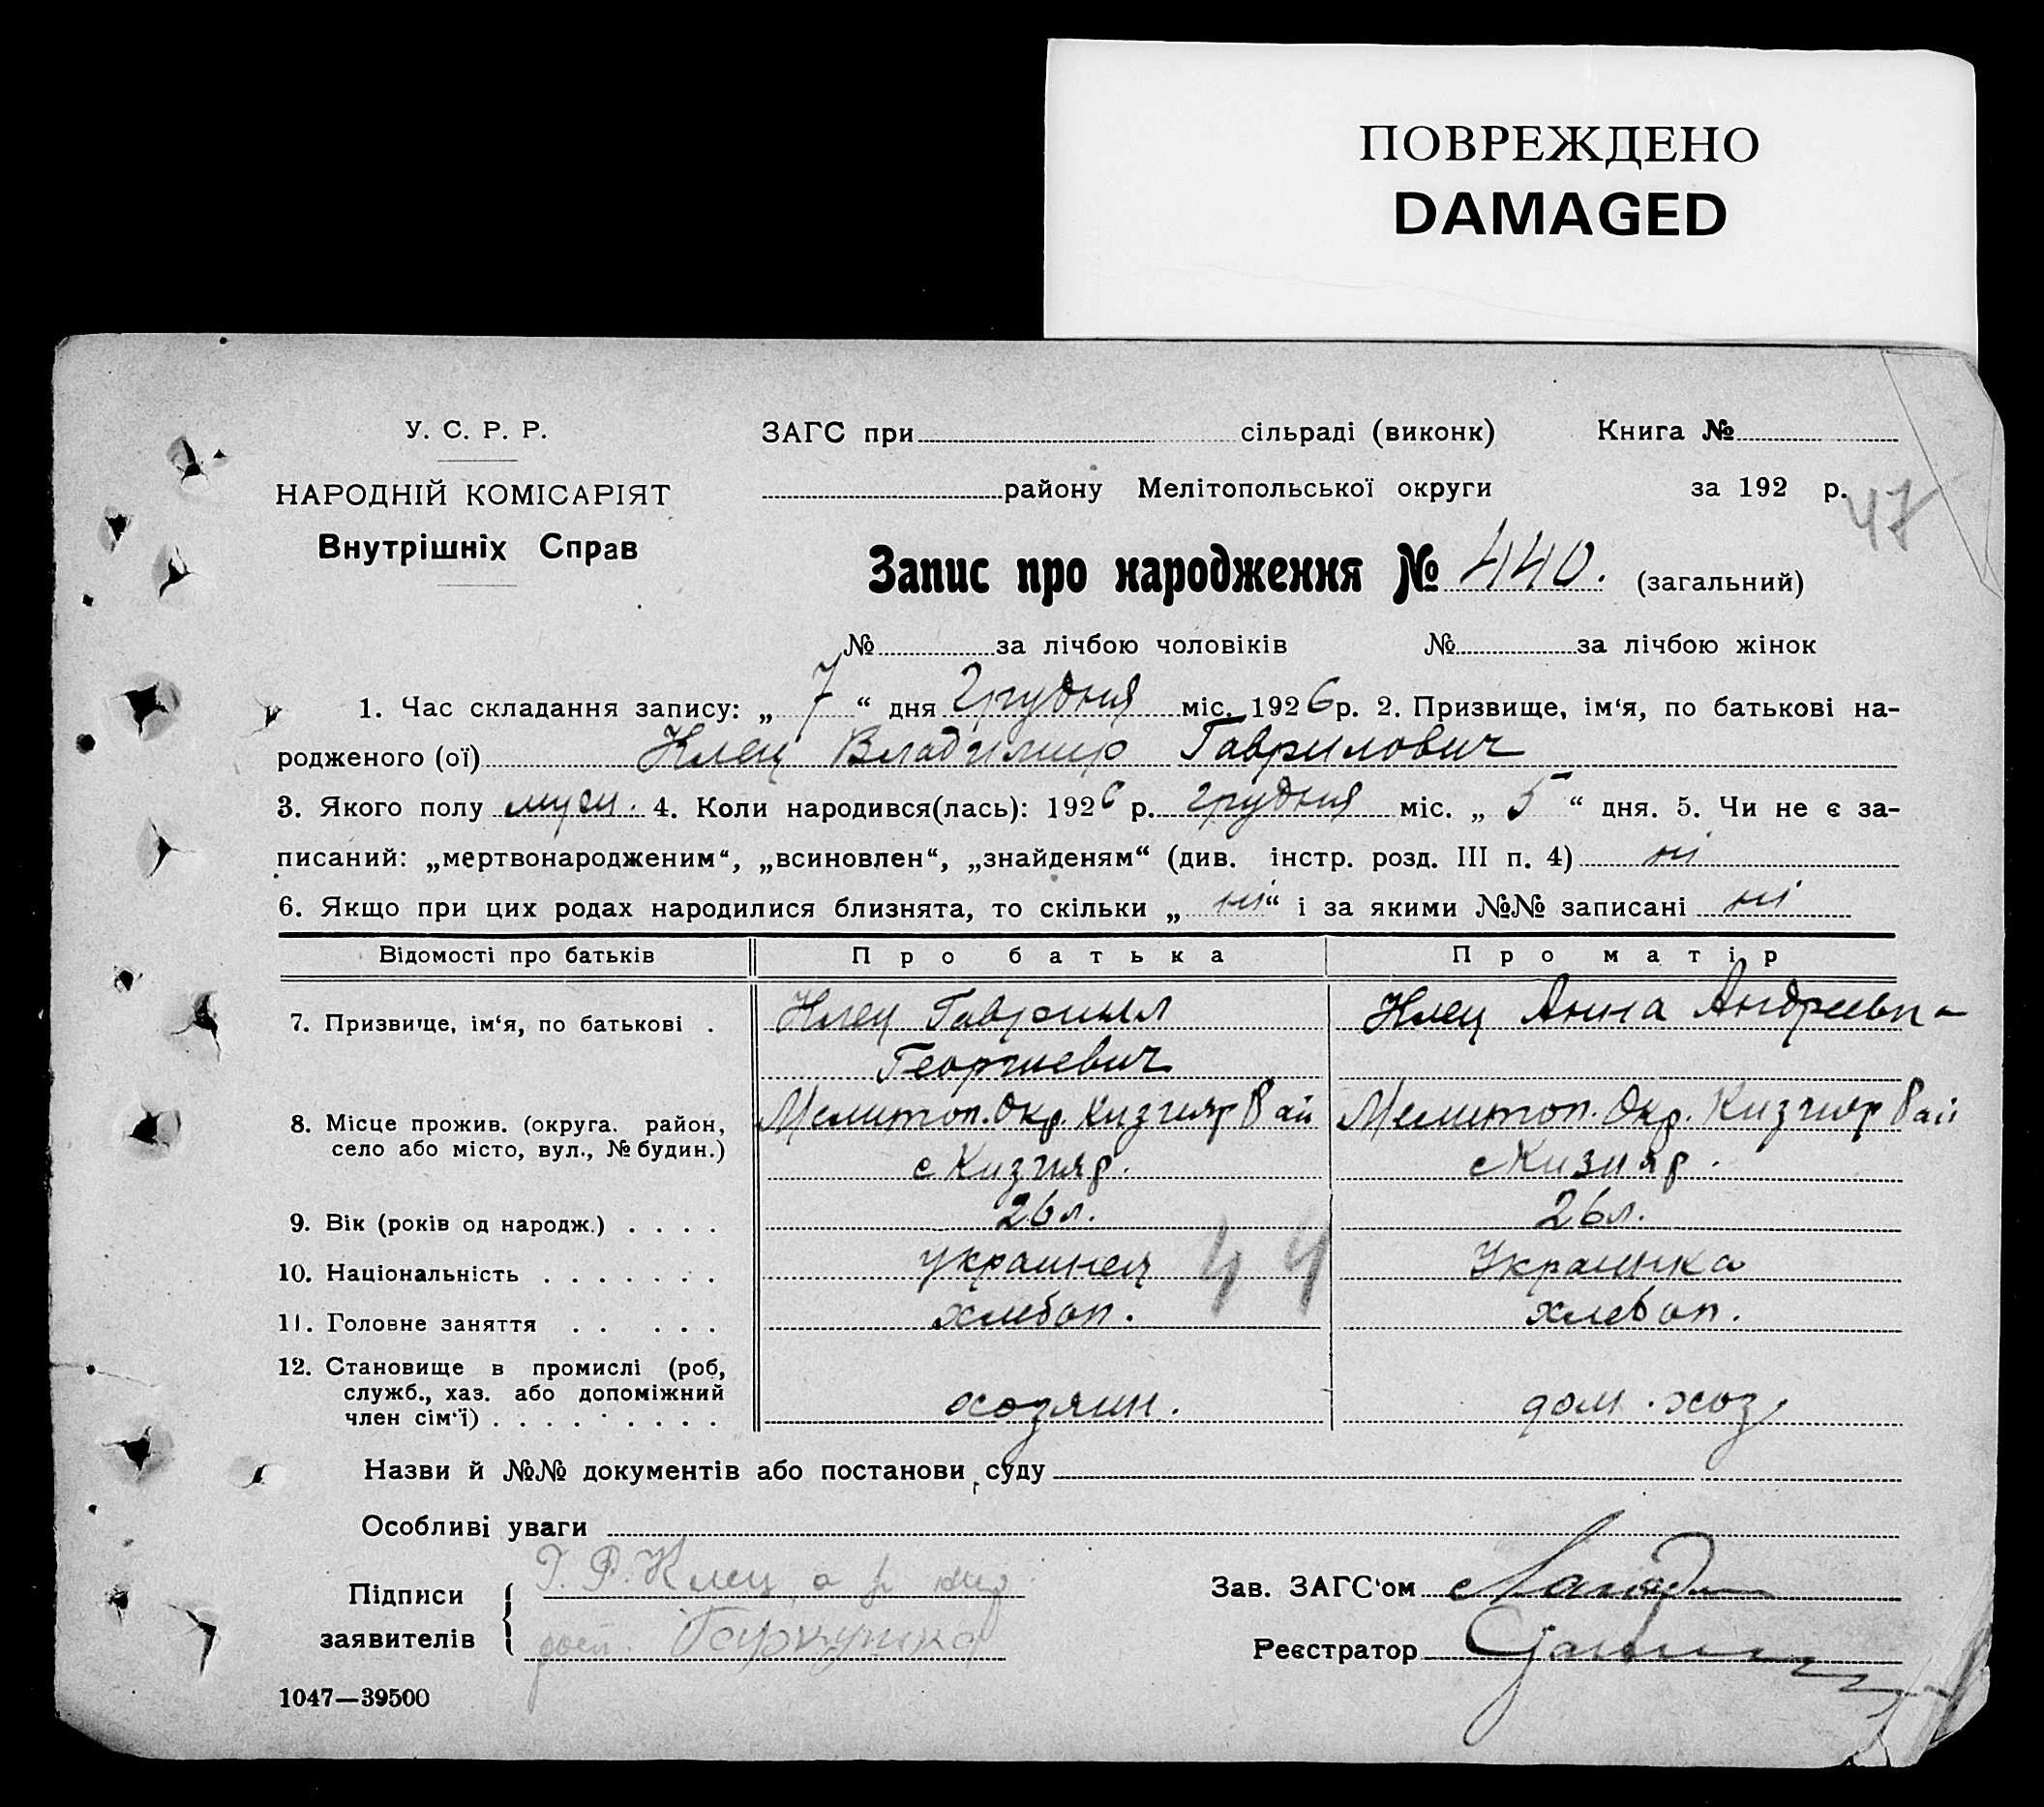 ПОВРЕЖДЕНО
DAMAGED
У. С. Р. Р.
ЗАГС при сільраді (виконк) Книга №
НАРОДНІЙ КОМІСАРІЯТ
району Мелітопольської округи за 192 р.
47
Внутрішніх Справ
Запис про народження № 440. (загальний)
№ за лічбою чоловіків № за лічбою жінок
1. Час складання запису: „ 7 “ дня Грудня міс. 1926 р. 2. Призвище, ім‘я, по батькові на-
родженого (ої) Клец Владимир Гаврилович
3. Якого полу муж. 4. Коли народився(лась): 1926 р. грудня міс. „ 5 “ дня. 5. Чи не є за-
писаний: „мертвонародженим“, „всиновлен“, „знайденям“ (див. інстр. розд. III п. 4) ні
6. Якщо при цих родах народилися близнята, то скільки „ ні “ і за якими №№ записані ні
Відомості про батьків Про батька Про матір
7. Призвище, ім‘я, по батькові . Клец Гавриил Клец Анна Андреевна
Георгиевич
8. Місце прожив. (округа. район, Мелитоп. Окр. Кизияр Рай Мелитоп. Окр. Кизияр Рай
село або місто, вул., № будин.) с Кизияр. с Кизияр.
9. Вік (років од народж.) . . . . 26 л. 26 л.
10. Національність . . . . . . . украинец Украинка
44
11. Головне заняття . . . . . хлебоп. хлебоп.
12. Становище в промислі (роб,
служб., хаз. або допоміжний
член сім‘ї) . . . . . . . . . хозяин. дом. хоз.
Назви й №№ документів або постанови суду
Особливі уваги
Підписи Клец Зав. ЗАГС‘ом
заявителів Реєстратор
1047—39500